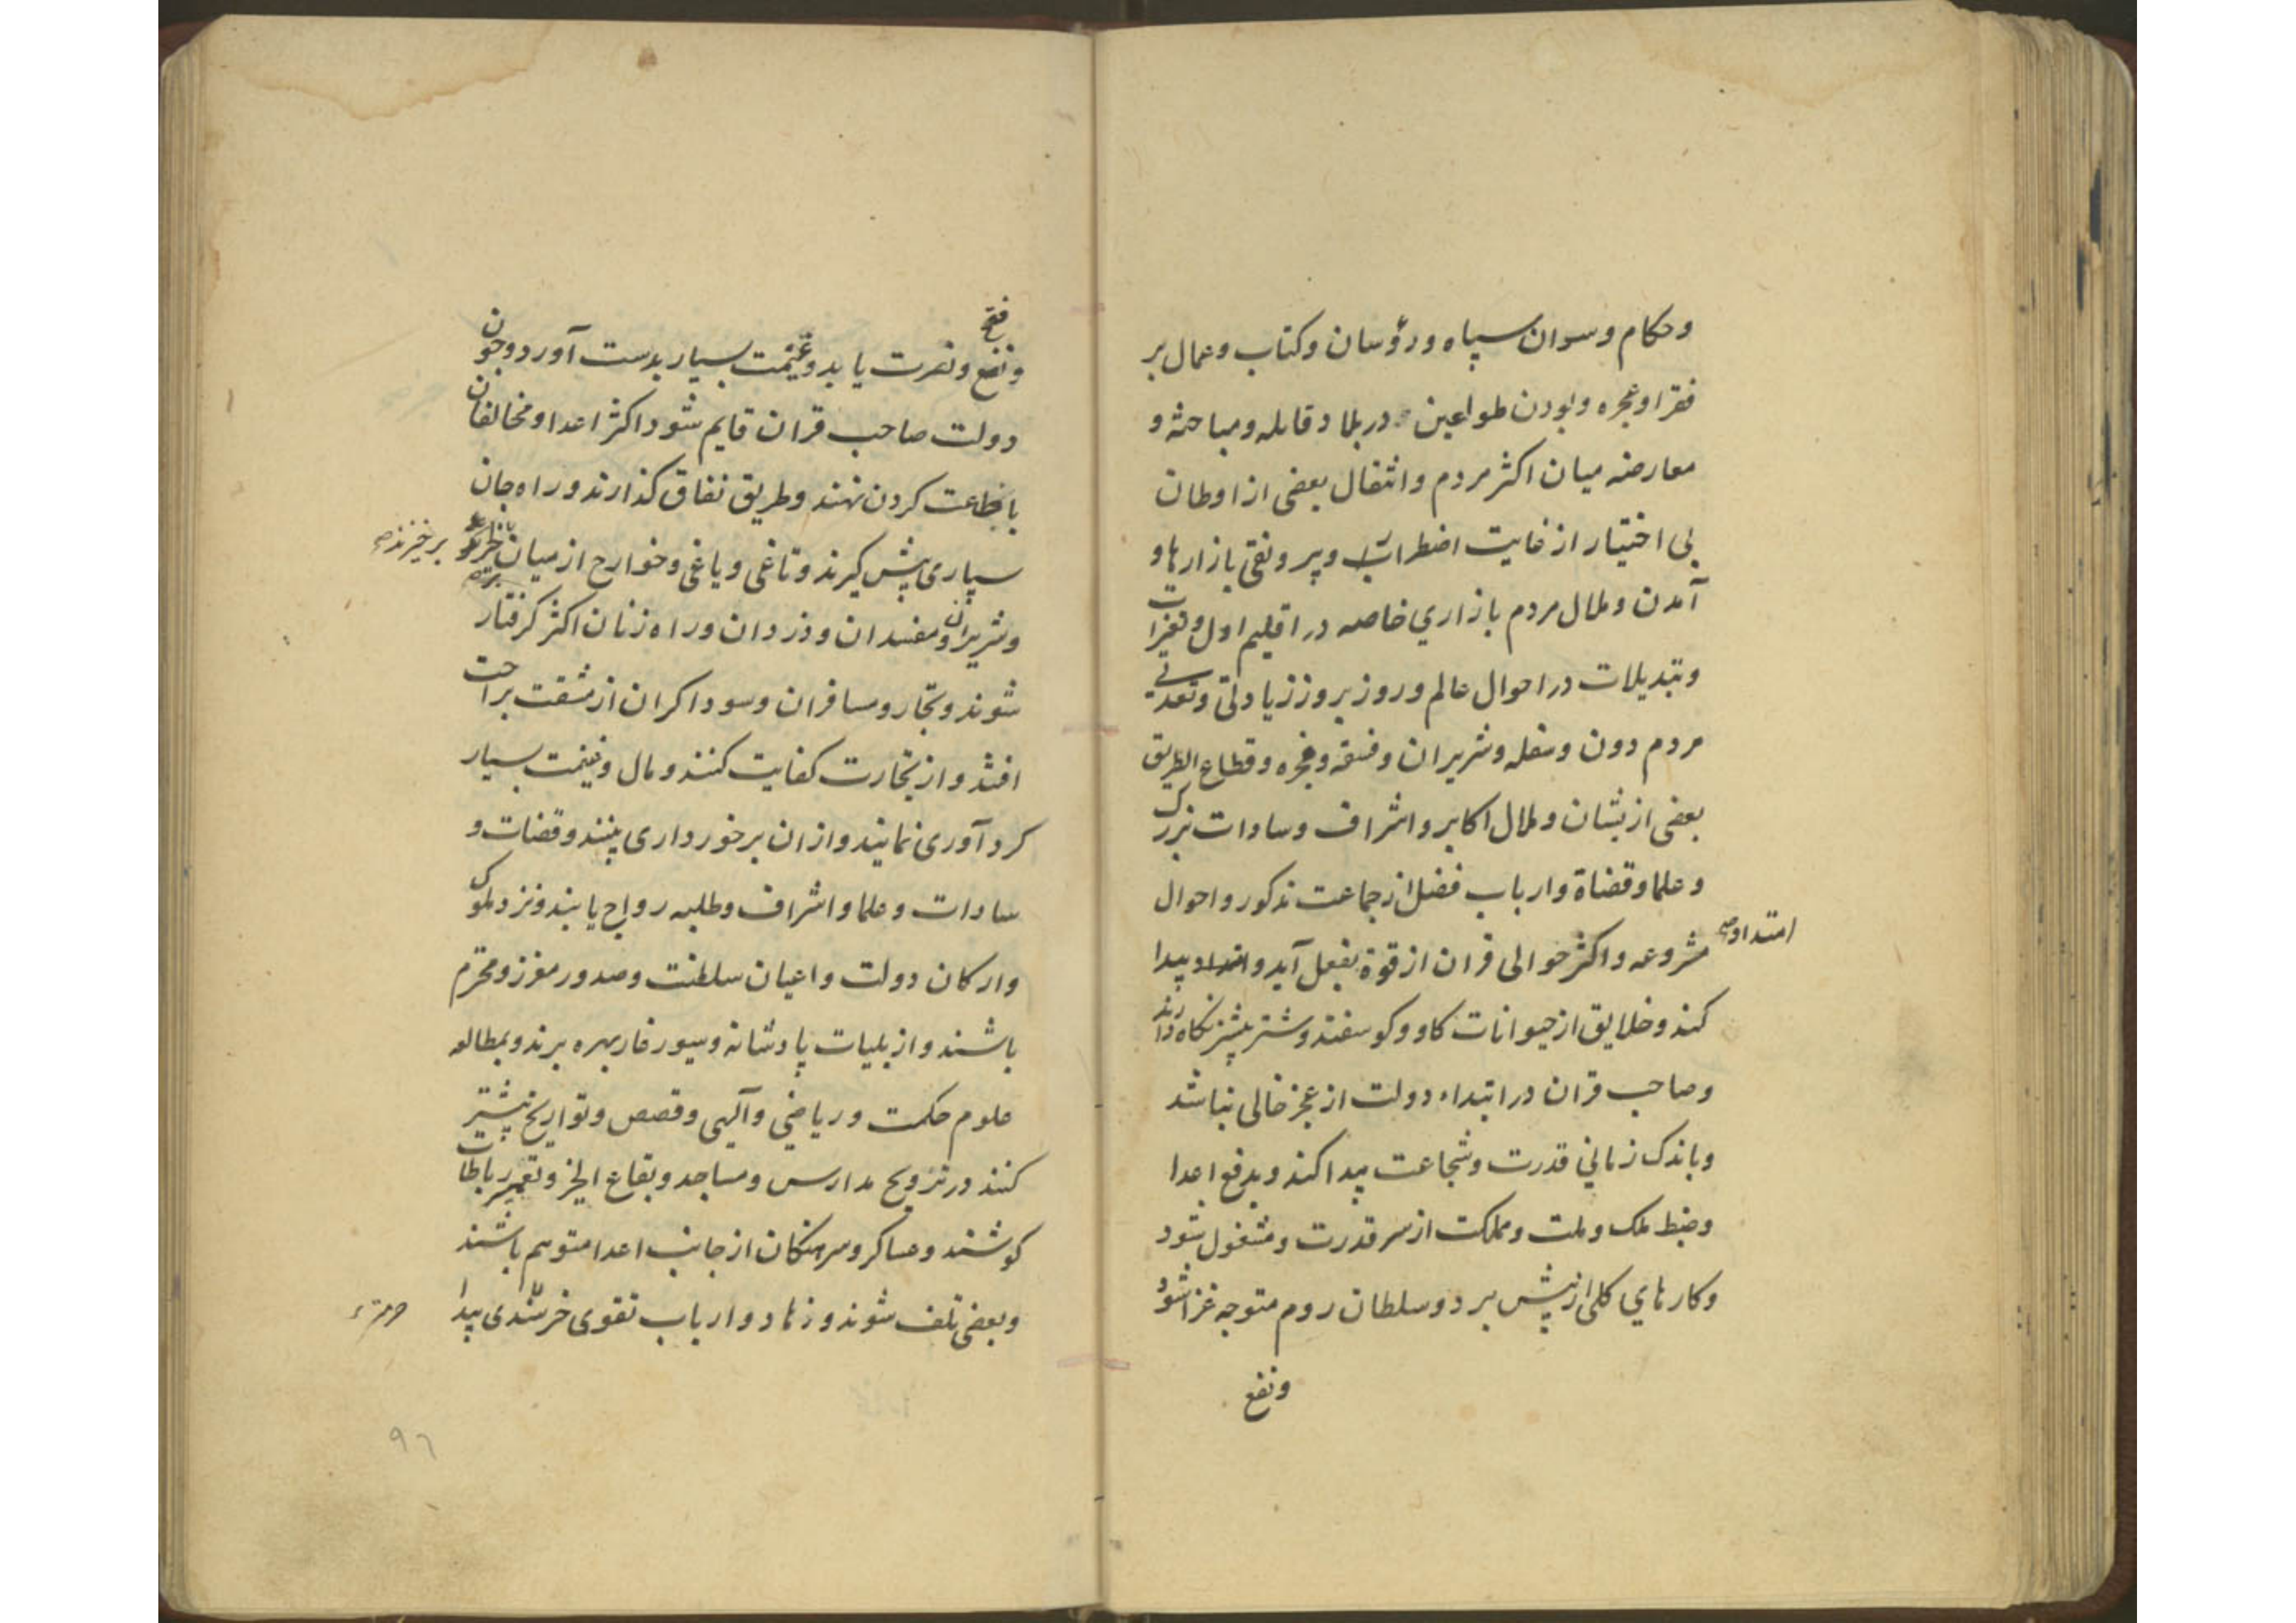 وحکام وسوان سپاه ورؤسان وکتاب وعمال بر
فقرا وعجره وبودن طواعین در بلاد قابله ومباحثه و
معارضه میان اکثر مردم وانتقال بعضی از اوطان
بی اختیار از غایت اضطراب وبیرونقی بازارها و
آمدن وملال مردم بازاري خاصه در اقلیم اول وتغیرات
وتبدیلات در احوال عالم وروز بروز زیادتی وتعدی
مردم دون وسفله وشریران وفسقه وفجره وقطاع الطریق
بعضی از یشان وملال اکابر واشراف وسادات بزرک
وعلما وقضاة وارباب فضل از جماعت مذکور واحوال
مشروعه واکثر حوالی قران از قوة بفعل آید وامتداد پیدا
امتداد صح
کند وخلایق از حیوانات کاو وکوسفند وشتر بیشتر نکاه دارند
وصاحب قران در ابتداء دولت از عجز خالی نباشد
وباندک زماني قدرت وشجاعت پیدا کند وبدفع اعدا
وضبط ملک وملت ومملکت از سر قدرت ومشغول شود
وکارهاي کلی از پیش برد وسلطان روم متوجه غزا شود
ونفع
فتح
ونفع ونصرت یابد وغنیمت بسیار بدست آورد وچون
دولت صاحب قران قایم شود اکثر اعدا ومخالفان
پا بطاعت کردن نهند وطریق نفاق کذارند وراه جان
سپاری پیش کیرند وتاغی ویاغی وخوارج از میان
برخیزند صح
وشریران ومفسدان ودزدان وراه زنان اکثر کرفتار
شوند وتجار ومسافران وسوداکران از مشقت براحت
افتند واز تجارت کفایت کنند ومال وغنیمت بسیار
کرد آوری نمایند وازان برخورداری بینند وقضات و
سادات وعلما واشراف وطلبه رواج یابند ونزد ملوک
وارکان دولت واعیان سلطنت وصدور معزز ومحترم
باشند واز بلیات پادشانه وسیورغار بهره برند وبمطالعه
علوم حکمت وریاضي وآلهی وقصص وتواریخ بیشتر
کنند در ترویج مدارس ومساجد وبقاع الخیر وتعمیر رباطات
کوشند وعساکر وسرهنکان از جانب اعدا متوهم باشند
وبعضی تلف شوند وزهاد وارباب تقوی خرسندی پیدا
۹٦